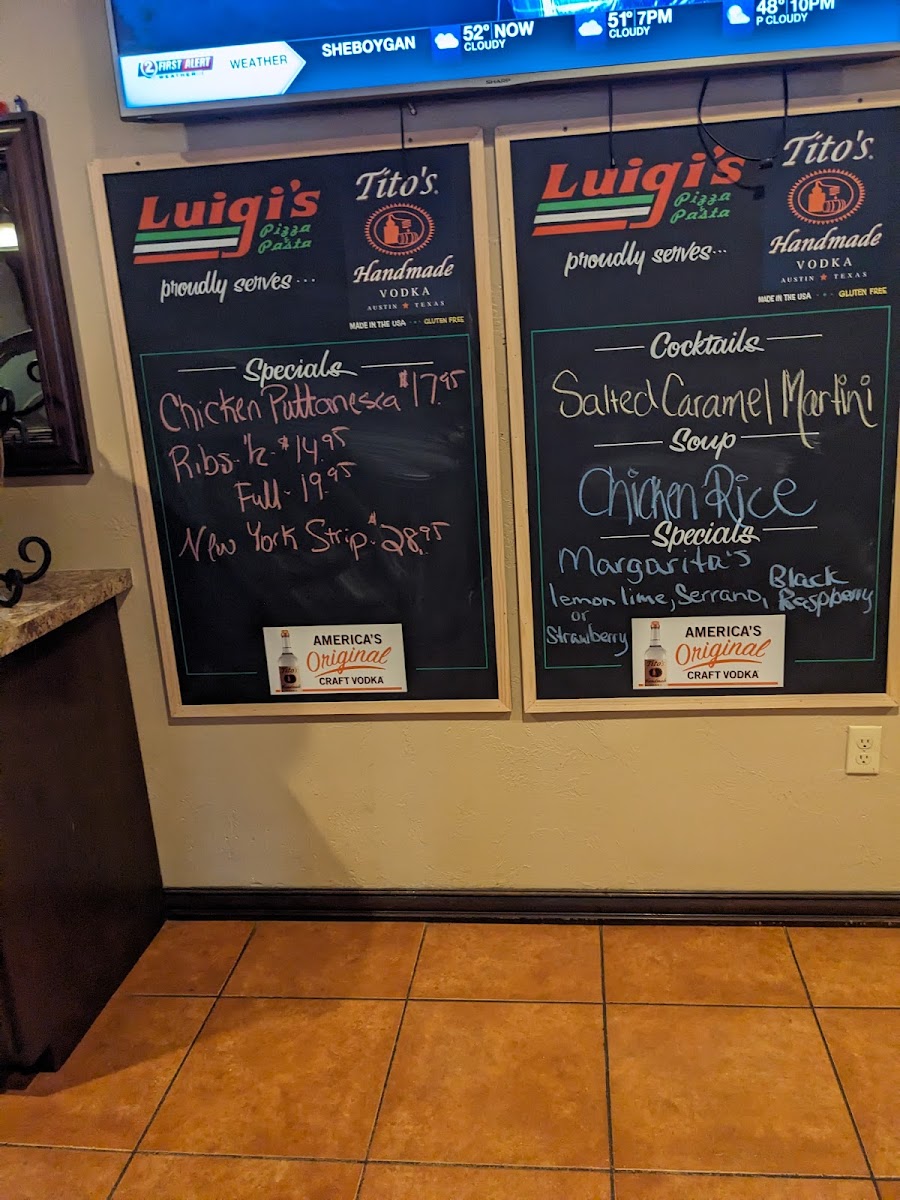 2 FIRST ALERT
WEATHER
WEATHER
SHEBOYGAN
52° NOW
CLOUDY
51° 7PM
CLOUDY
48° 10PM
P CLOUDY
SHARP
Luigi's
Pizza
& Pasta
proudly serves...
Tito's
Handmade
VODKA
AUSTIN ★ TEXAS
MADE IN THE USA GLUTEN FREE
Specials
Chicken Puttanesca $17.95
Ribs - ½ - $14.95
Full - 19.95
New York Strip - $28.95
AMERICA'S
Original
CRAFT VODKA
Tito's
Luigi's
Pizza
& Pasta
proudly serves...
Tito's
Handmade
VODKA
AUSTIN ★ TEXAS
MADE IN THE USA GLUTEN FREE
Cocktails
Salted Caramel Martini
Soup
Chicken Rice
Specials
Margarita's
lemon lime, Serrano, Black Raspberry
or
Strawberry
AMERICA'S
Original
CRAFT VODKA
Tito's